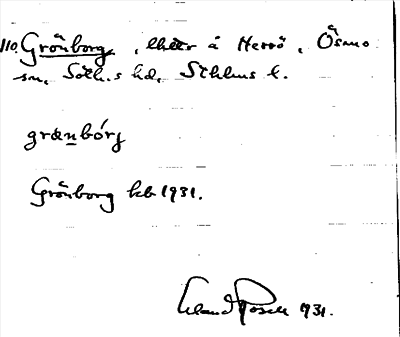 110. Grönborg, lht å Herrö, Ösmo
sn, Soth.s hd, Sthlms l.
grænbórj
Grönborg kb 1931.
Erland Rosell 1931.